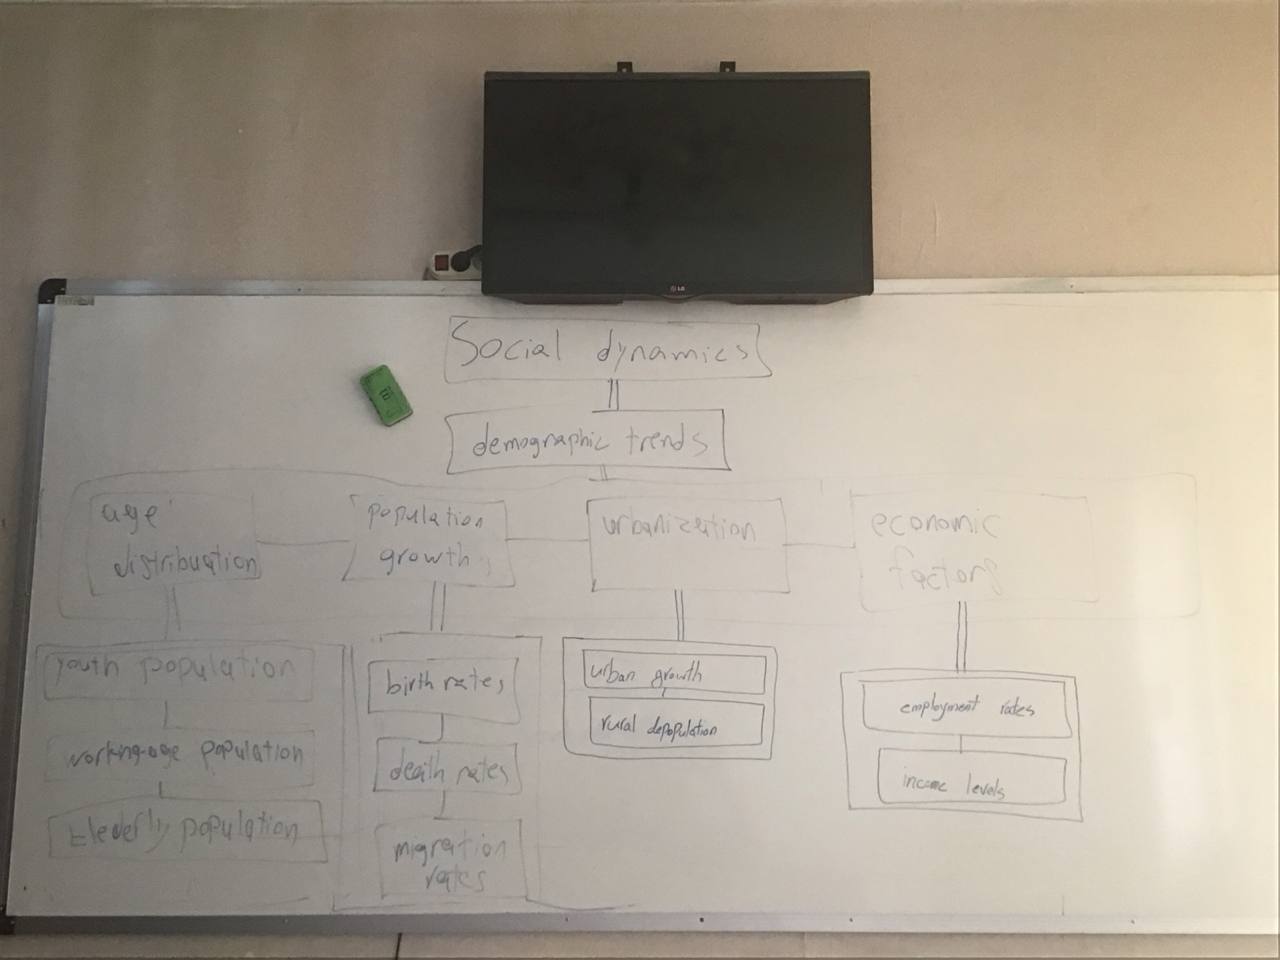 LG
Social dynamics
demographic trends
age
distribuation
population
growth
urbanization
economic
factors
youth population
working-age population
Elederly population
birth rates
death rates
migration
rates
urban growth
rural depopulation
employment rates
income levels